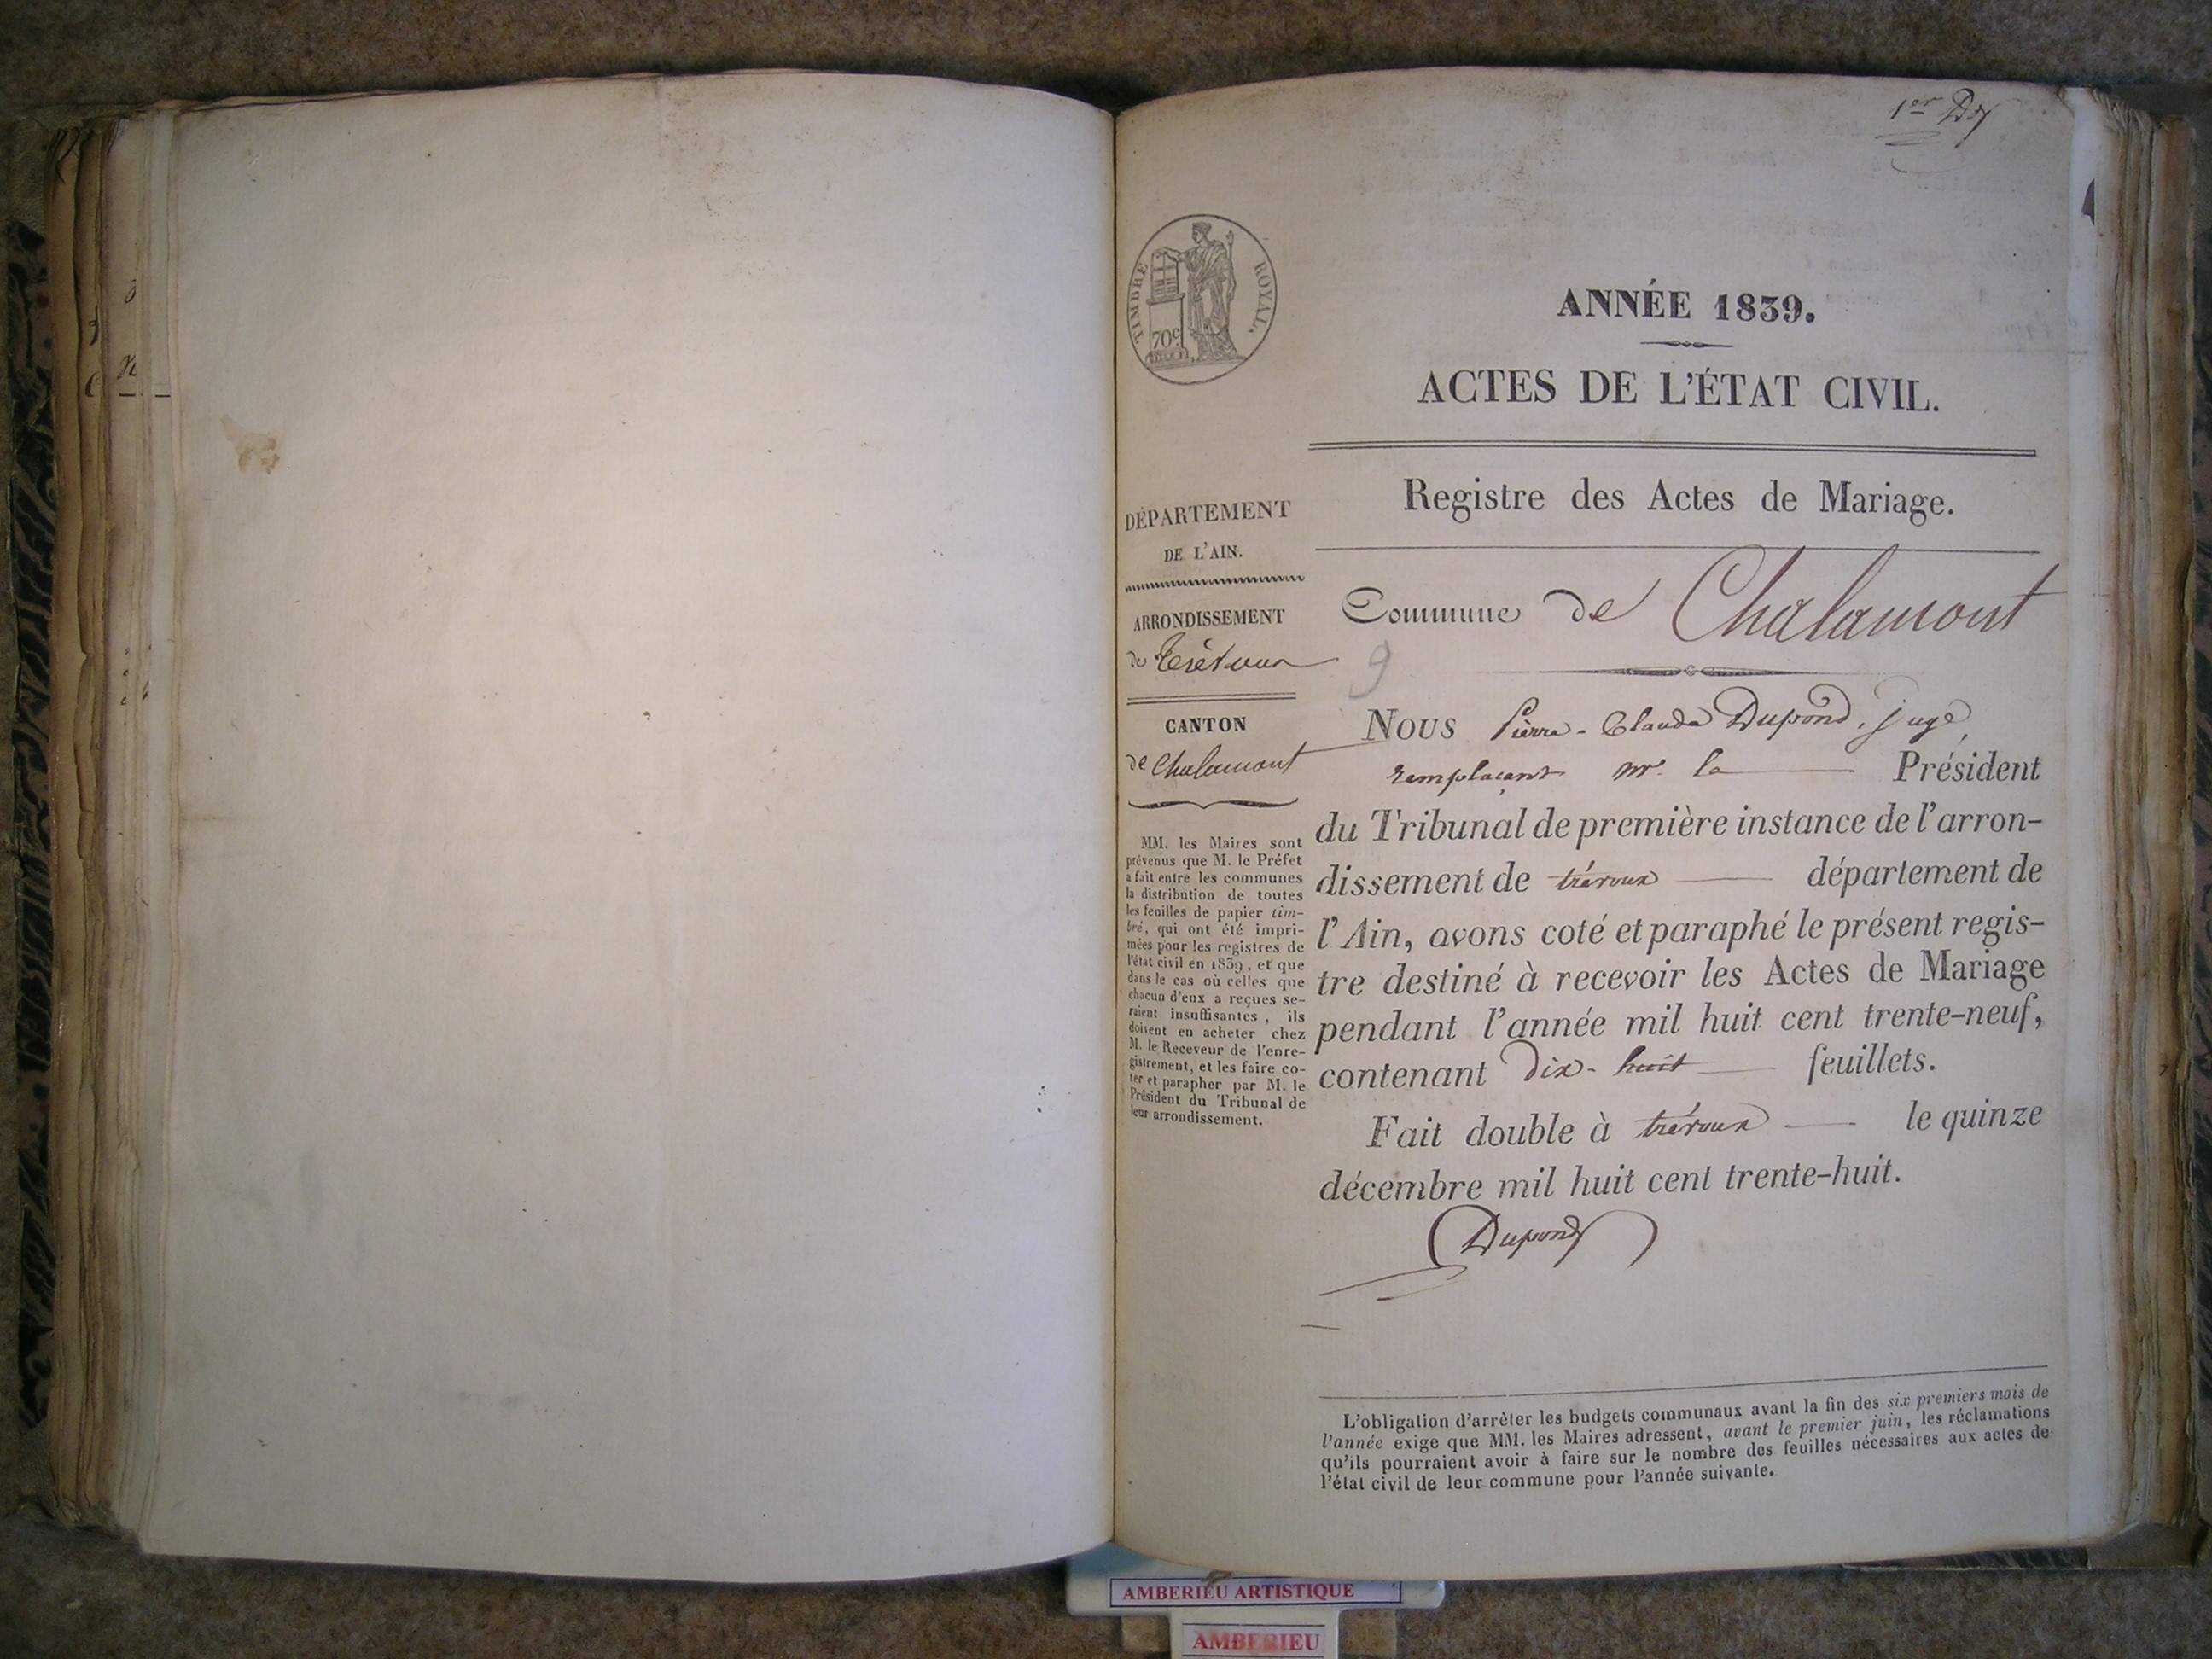 1er
TIMBRE ROYAL.
70c
ANNÉE 1839.
ACTES DE L'ÉTAT CIVIL.
Registre des Actes de Mariage.
DÉPARTEMENT
DE L'AIN.
ARRONDISSEMENT
de
CANTON
de Chalamont
MM. les Maires sont
prévenus que M. le Préfet
a fait entre les communes
la distribution de toutes
les feuilles de papier tim-
bré, qui ont été impri-
mées pour les registres de
l'état civil en 1839, et que
dans le cas où celles que
chacun d'eux a reçues se-
raient insuffisantes, ils
doivent en acheter chez
M. le Receveur de l'enre-
gistrement, et les faire co-
ter et parapher par M. le
Président du Tribunal de
leur arrondissement.
Commune de Chalamont
9
Nous Pierre-Claude Dupond, juge,
remplaçant Mr. le Président
du Tribunal de première instance de l'arron-
dissement de trévoux département de
l'Ain, avons coté et paraphé le présent regis-
tre destiné à recevoir les Actes de Mariage
pendant l'année mil huit cent trente-neuf,
contenant dix-huit feuillets.
Fait double à trévoux le quinze
décembre mil huit cent trente-huit.
Dupond
L'obligation d'arrêter les budgets communaux avant la fin des six premiers mois de
l'année exige que MM. les Maires adressent, avant le premier juin, les réclamations
qu'ils pourraient avoir à faire sur le nombre des feuilles nécessaires aux actes de
l'état civil de leur commune pour l'année suivante.
AMBERIEU ARTISTIQUE
AMBERIEU